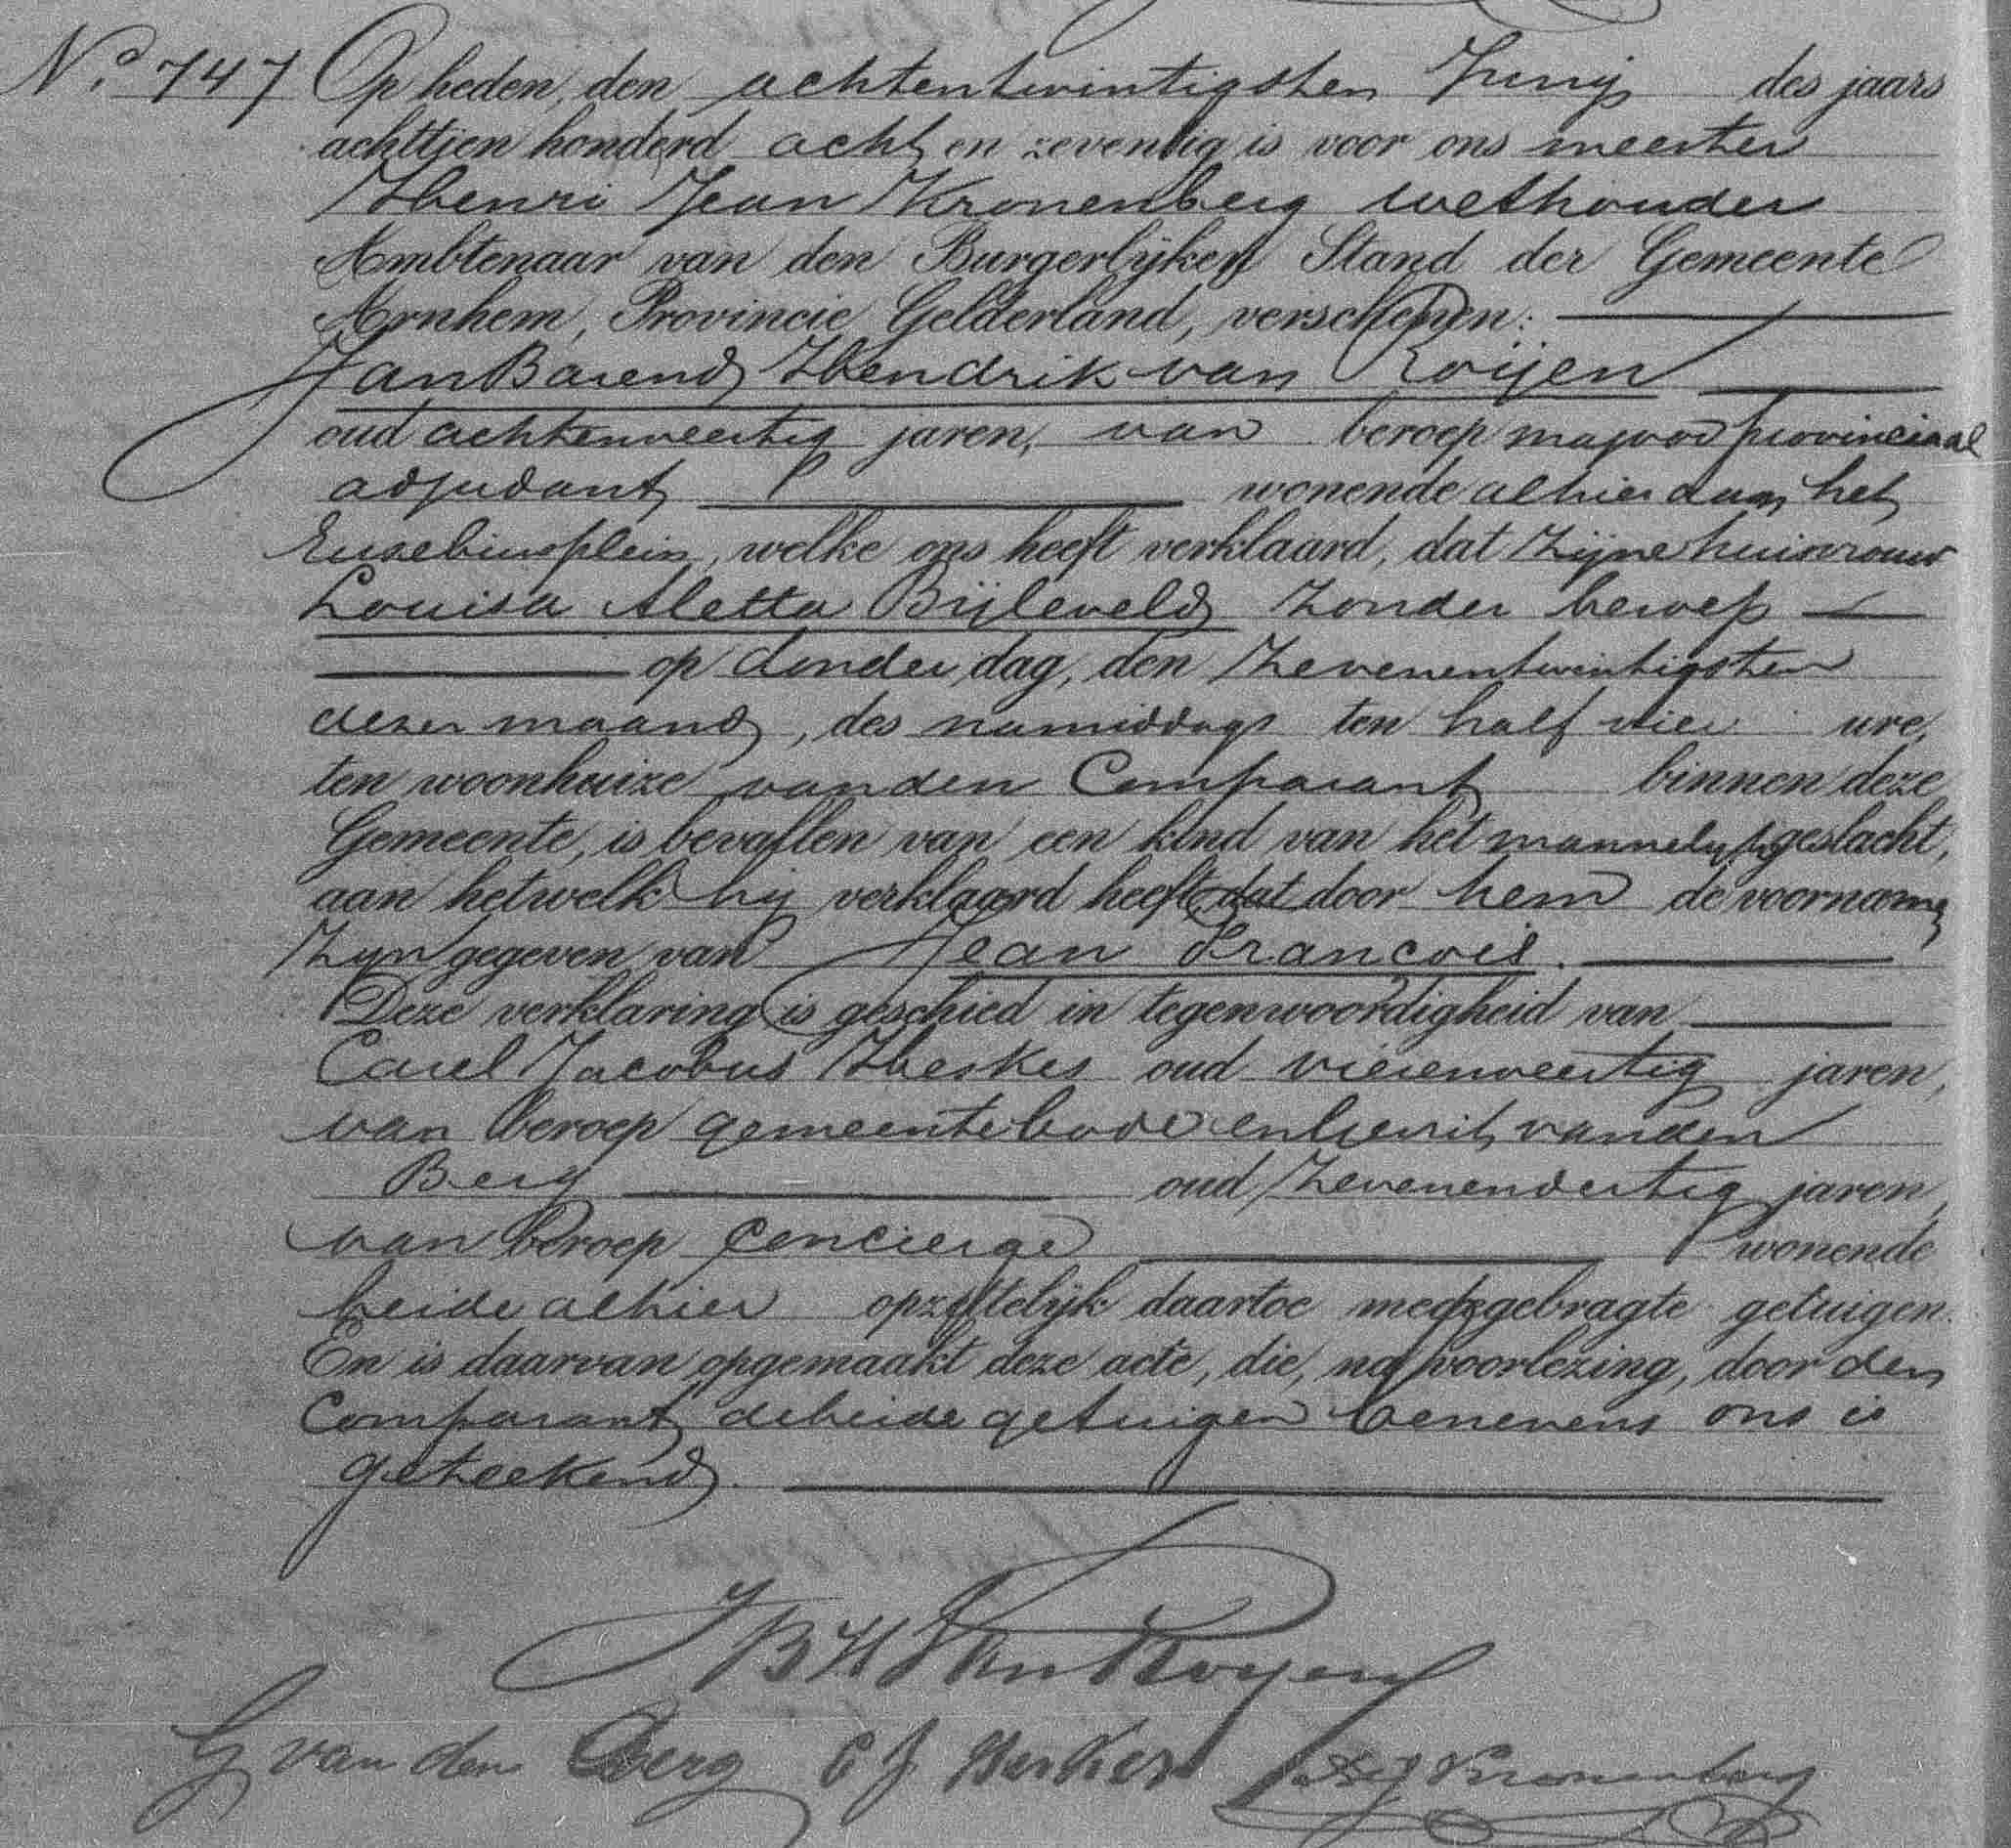 No. 747 Op heden, den achtentwintigsten Junij des jaars
achttien honderd acht en zeventig is voor ons meester
Henri Jean Kronenberg wethouder
Ambtenaar van den Burgerlijken Stand der Gemeente
Arnhem, Provincie Gelderland, verschenen:
Jan Barend Hendrik van Roijen
oud achtenveertig jaren, van beroep majoor provinciaal
adjudant wonende alhier aan het
Eusebiusplein, welke ons heeft verklaard, dat zijne huisvrouw
Louisa Aletta Bijleveld zonder beroep
op donderdag, den zevenentwintigsten
dezer maand, des namiddags ten half vier ure,
ten woonhuize van den Comparant binnen deze
Gemeente, is bevallen van een kind van het mannelijk geslacht,
aan hetwelk hij verklaard heeft, dat door hem de voornamen
zijn gegeven van Jean Francois.
Deze verklaring is geschied in tegenwoordigheid van
Carel Jacobus Heskes oud vierenveertig jaren,
van beroep gemeentebode en Gerrit van den
Berg oud zevenendertig jaren,
van beroep concierge wonende
beide alhier opzettelijk daartoe medegebragte getuigen.
En is daarvan opgemaakt deze acte, die, na voorlezing, door den
Comparant de beide getuigen benevens ons is
geteekend.
JBH van Royen
G van den Berg C J Heskes H J Kronenberg